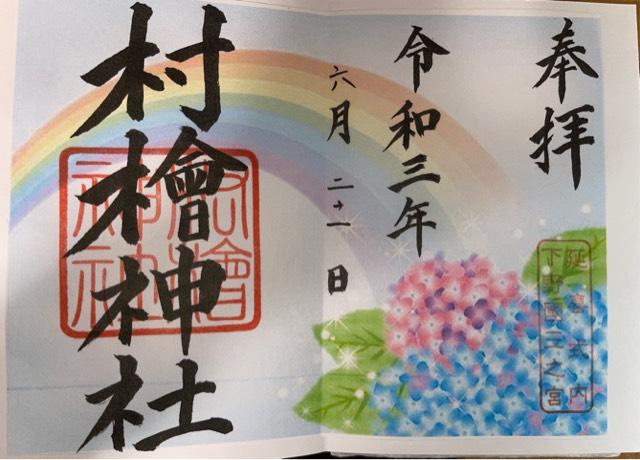 奉拝
延喜式内
下野國三之宮
令和三年
六月二十一日
村檜神社
村檜神社